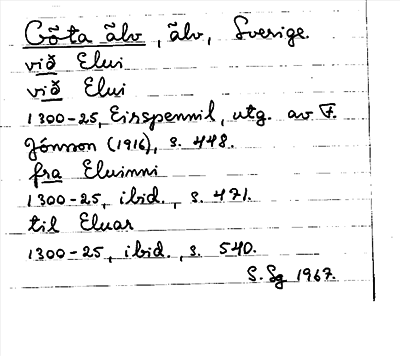 Göta älv, älv, Sverige.
við Elui
við Elui
1300-25, Eirspennil, utg. av F.
Jónsson (1916), s. 448.
fra Eluinni
1300-25, ibid., s. 471.
til Eluar
1300-25, ibid., s. 540.
S. Sg 1967.